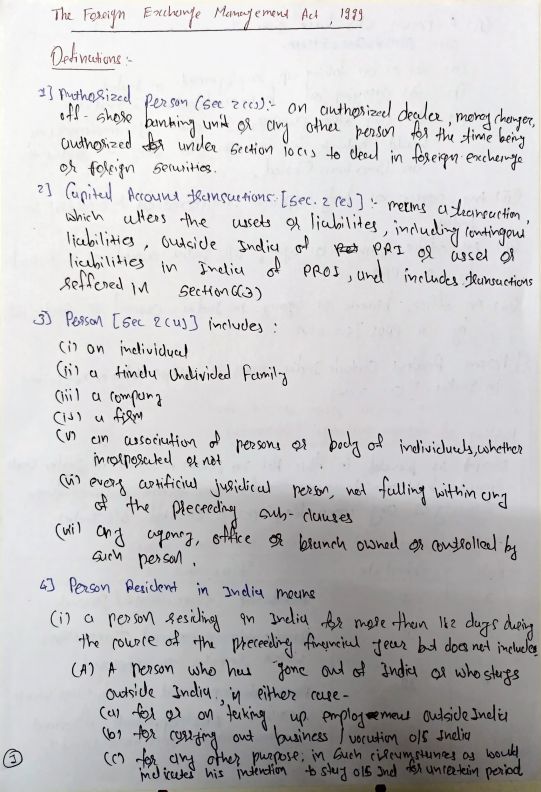 The Foreign Exchange Management Act, 1999
Definations :-
1] Authorized Person (Sec 2(c)) :- an authorized dealer, money changer,
off-shore banking unit or any other person for the time being
authorized under section 10(1) to deal in foreign exchange
or foreign securities.
2] Capital Account transactions [Sec. 2(e)] :- means a transaction,
which alters the assets or liabilites, including contingous
liabilities, outside India of PRI or asset or
liabilities in India of PROI, and includes transactions
reffered in section 6(3)
3) Person [Sec 2(u)] includes :
(i) an individual
(ii) a Hindu Undivided Family
(iii) a company
(iv) a firm
(v) an association of persons or body of individuals, whether
incorporated or not
(vi) every artificial juridical person, not falling within any
of the preceeding sub-clauses
(vii) any agency, office or branch owned or controlled by
such person.
4] Person Resident in India means
(i) a person residing in India for more than 182 days during
the cource of the preceeding financial year but does not includes
(A) A person who has gone out of India or who stays
outside India, in either case -
(a) for or on taking up employment outside India
(b) for carrying out business / vocation o/s India
(c) for any other purpose, in such circumstances as would
indicates his intention to stay o/s Ind for uncertein period
1